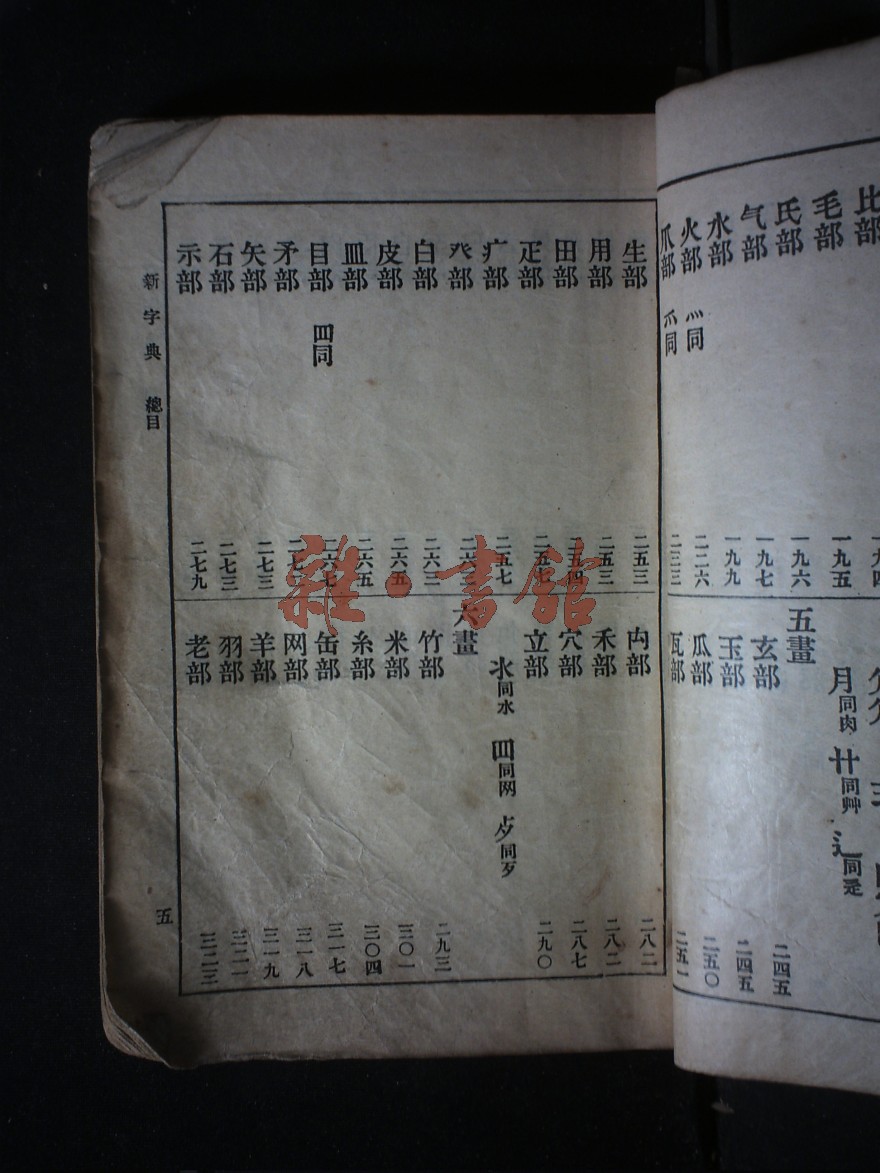 比部 一九四
毛部 一九五
氏部 一九六
气部 一九七
水部 一九九
火部 灬同 二二六
爪部 爫同 二三三
月同肉 艹同艸 辶同辵
五畫
玄部 二四五
玉部 二四五
瓜部 二五〇
瓦部 二五一
生部 二五三
用部 二五三
田部 二五四
疋部 二五七
疒部 二五七
癶部 二六三
白部 二六三
皮部 二六五
皿部 二六五
目部 罒同 二六七
矛部
矢部 二七三
石部 二七三
示部 二七九
禸部 二八二
禾部 二八二
穴部 二八七
立部 二九〇
氺同水 罒同网 歺同歹
六畫
竹部 二九三
米部 三〇一
糸部 三〇四
缶部 三一七
网部 三一八
羊部 三一九
羽部 三二一
老部 三二三
新字典 總目 五
雜·書館